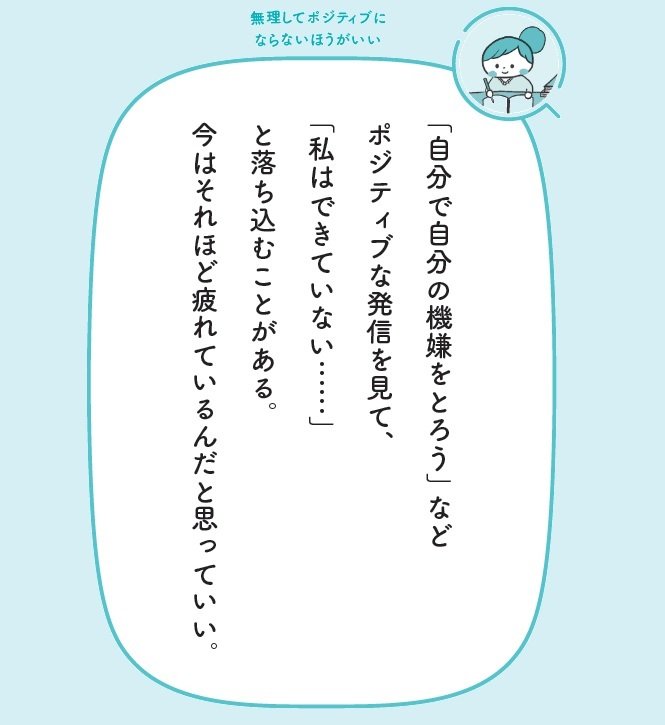 無理してポジティブに
ならないほうがいい
「自分で自分の機嫌をとろう」など
ポジティブな発信を見て、
「私はできていない……」
と落ち込むことがある。
今はそれほど疲れているんだと思っていい。